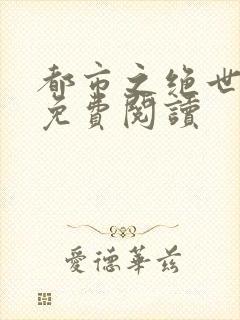 都市之絕世
免費閱讀
愛德華茲